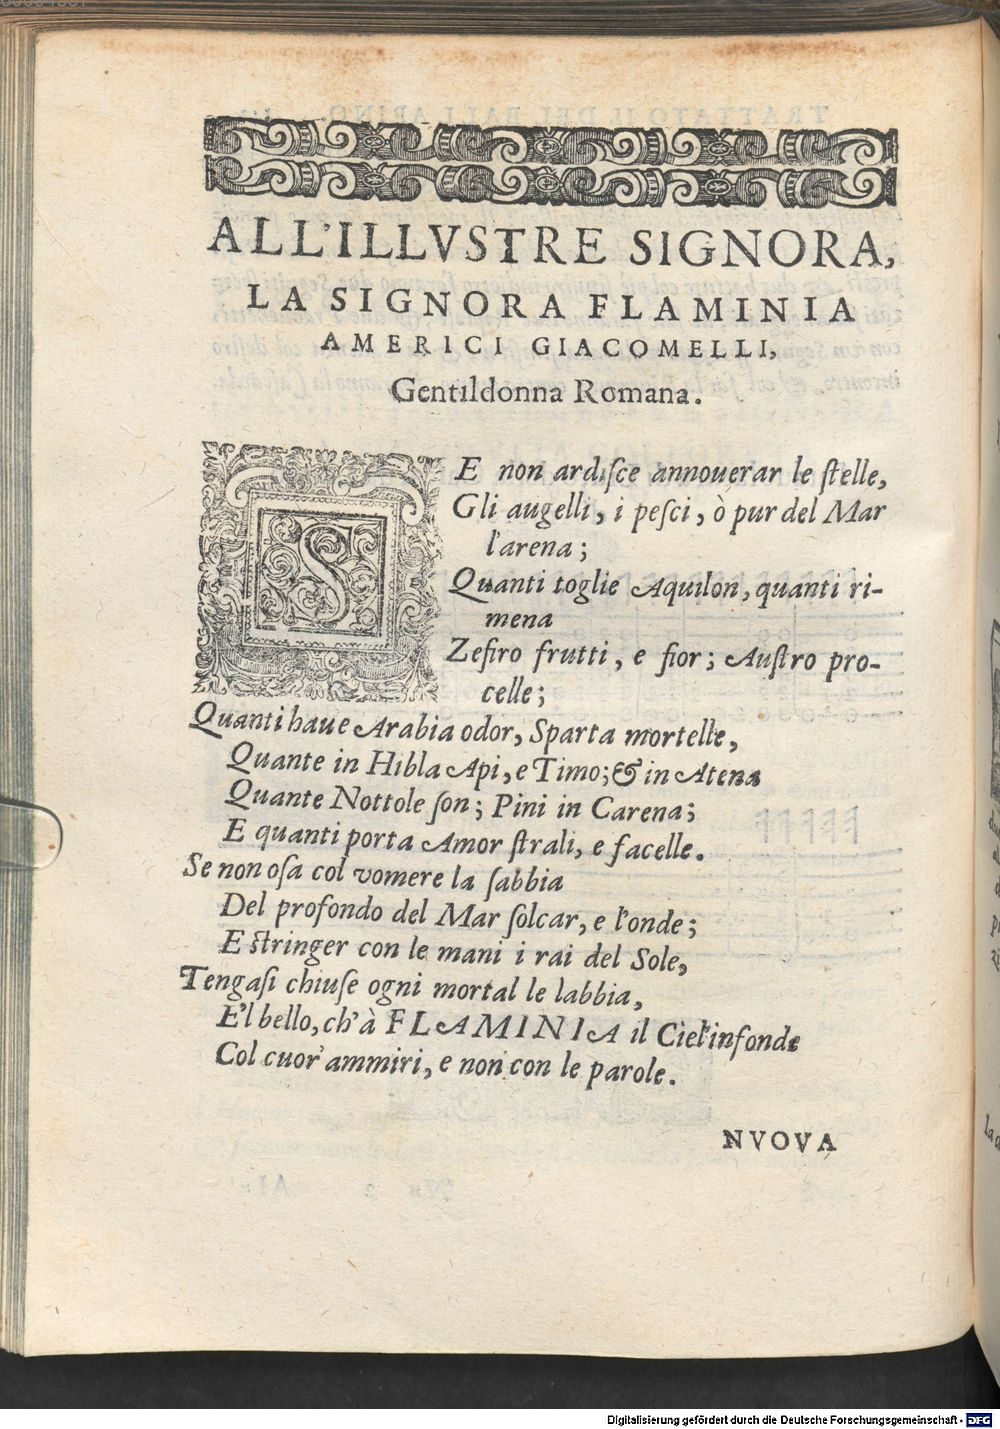 ALL'ILLVSTRE SIGNORA,
LA SIGNORA FLAMINIA
AMERICI GIACOMELLI,
Gentildonna Romana.
SE non ardiſce annouerar le ſtelle,
Gli augelli, i peſci, ò pur del Mar
l'arena;
Quanti toglie Aquilon, quanti ri-
mena
Zefiro frutti, e fior; Auſtro pro-
celle;
Quanti haue Arabia odor, Sparta mortelle,
Quante in Hibla Api, e Timo; & in Atena
Quante Nottole ſon; Pini in Carena;
E quanti porta Amor ſtrali, e facelle.
Se non oſa col vomere la ſabbia
Del profondo del Mar ſolcar, e l'onde;
E ſtringer con le mani i rai del Sole,
Tengaſi chiuſe ogni mortal le labbia,
E'l bello, ch'à FLAMINIA il Ciel'infonde
Col cuor'ammiri, e non con le parole.
NVOVA
Digitalisierung gefördert durch die Deutsche Forschungsgemeinschaft - DFG